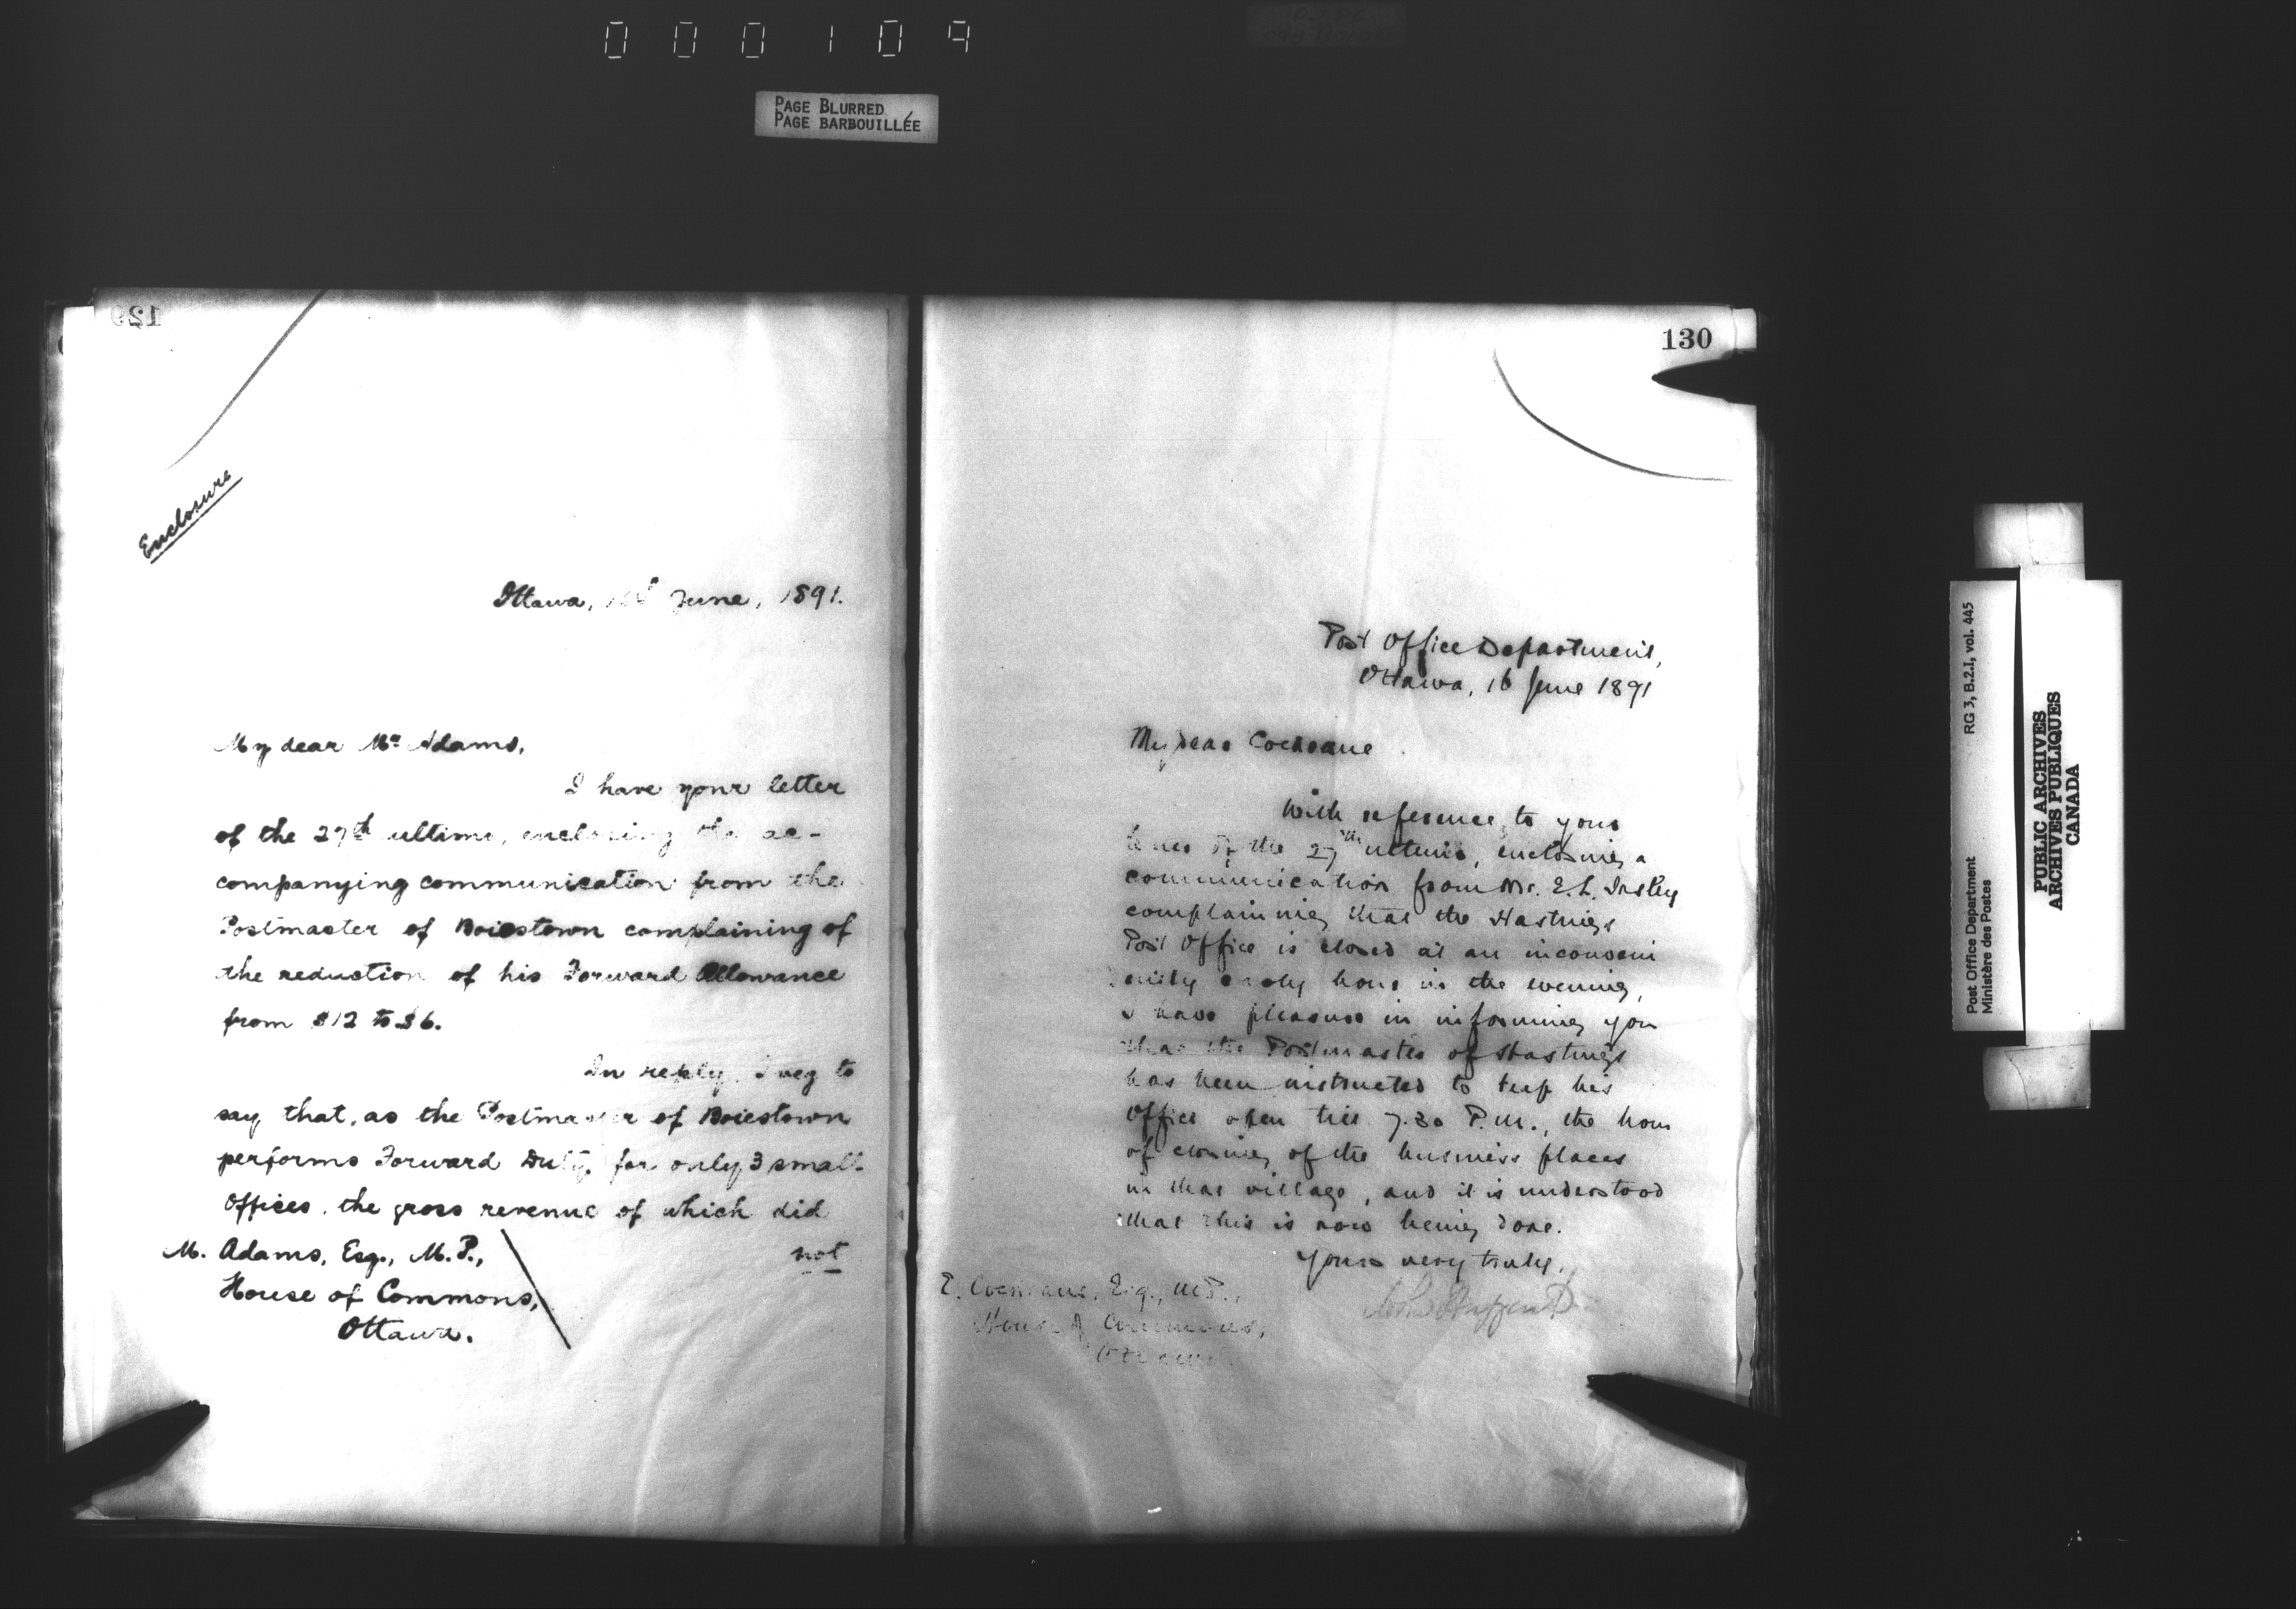 000109
PAGE BLURRED
PAGE BARBOUILLÉE
129
Enclosure
Ottawa, June, 1891.
My dear Mr Adams,
I have your letter
of the 27th ultimo, enclosing the ac-
companying communication from the
Postmaster of Boiestown complaining of
the reduction of his Forward Allowance
from $12 to $6.
In reply, I beg to
say that, as the Postmaster of Boiestown
performs Forward Duty for only 3 small
Offices, the gross revenue of which did
not
M. Adams, Esq., M.P.,
House of Commons,
Ottawa.
130
Post Office Department,
Ottawa, 16 June 1891
My dear Cochrane
With reference to your
letter of the 27th ultimo, enclosing a
communication from Mr. E. L.
complaining that the Hastings
Post Office is closed at an inconveni
ently early hour in the evening,
I have pleasure in informing you
that the Postmaster of Hastings
has been instructed to keep his
Office open till 7.30 P.M., the hour
of closing of the business places
in that village, and it is understood
that this is now being done.
Yours very truly,
E. Cochrane, Esq., M.P.,
House of Commons,
Ottawa
Post Office Department
Ministère des Postes
RG 3, B.2.I, vol. 445
PUBLIC ARCHIVES
ARCHIVES PUBLIQUES
CANADA